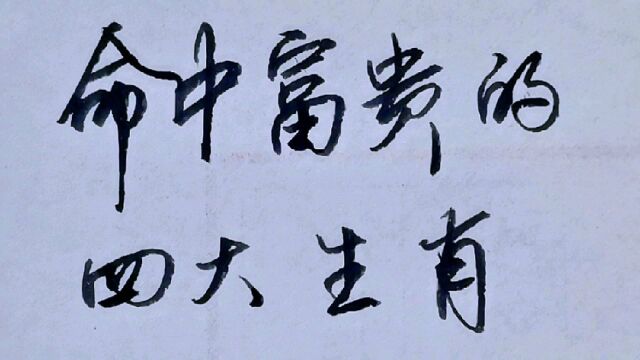 命中富贵的
四大生肖